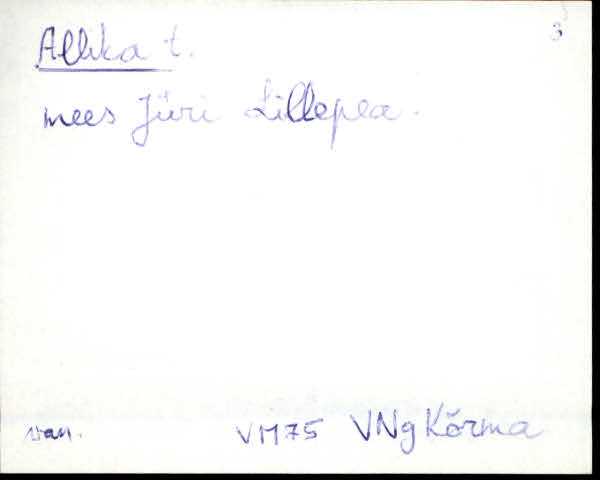 3
Allika t.
mees Jüri Lillepea.
van. VM75 VNg Kõrma